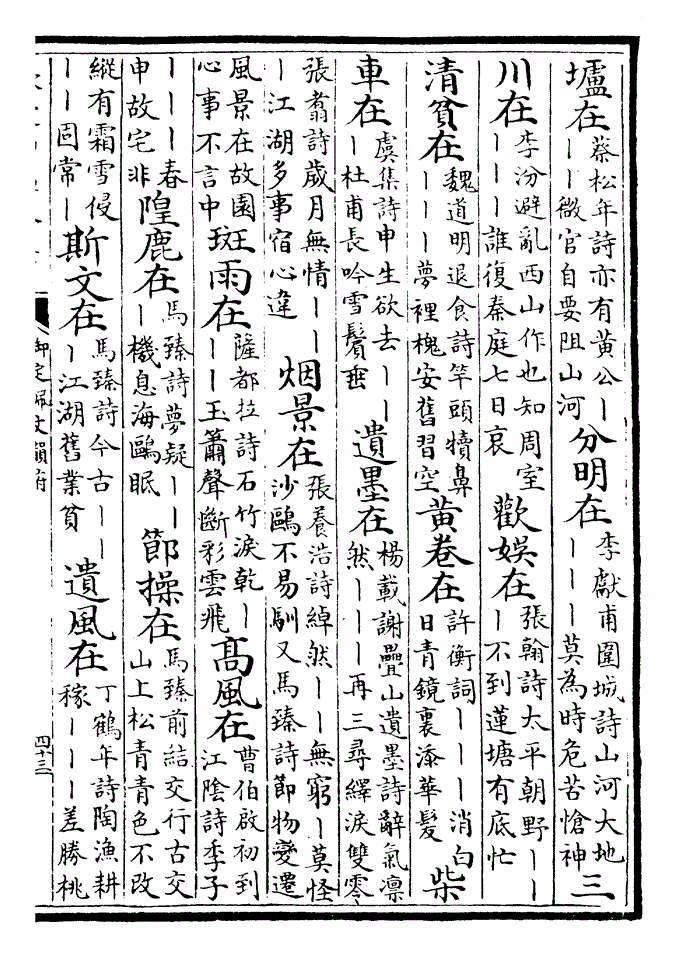 壚在
蔡松年詩亦有黃公｜
｜｜微官自要阻山河
分明在
李獻甫圍城詩山河大地
｜｜｜莫為時危苦愴神
三
川在
李汾避亂西山作也知周室
｜｜｜誰復秦庭七日哀
歡娛在
張翰詩太平朝野｜｜
｜不到蓮塘有底忙
清貧在
魏道明退食詩竿頭犢鼻
｜｜｜夢裡槐安舊習空
黃卷在
許衡詞｜｜｜消白
日青鏡裏添華髮
柴
車在
虞集詩申生欲去｜｜
｜杜甫長吟雪鬢垂
遺墨在
楊載謝疊山遺墨詩辭氣凜
然｜｜｜再三尋繹淚雙零
張翥詩歲月無情｜｜
｜江湖多事宿心違
烟景在
張養浩詩綽然｜｜無窮｜莫怪
沙鷗不易馴又馬臻詩節物變遷
風景在故園
心事不言中
斑雨在
薩都拉詩石竹淚乾｜
｜｜玉簫聲斷彩雲飛
髙風在
曹伯啟初到
江陰詩季子
｜｜｜春
申故宅非
隍鹿在
馬臻詩夢疑｜｜
｜機息海鷗眠
節操在
馬臻前結交行古交
山上松青青色不改
縱有霜雪侵
｜｜固常｜
斯文在
馬臻詩今古｜｜
｜江湖舊業貧
遺風在
丁鶴年詩陶漁耕
稼｜｜｜差勝桃
御定佩文韻府
四十三